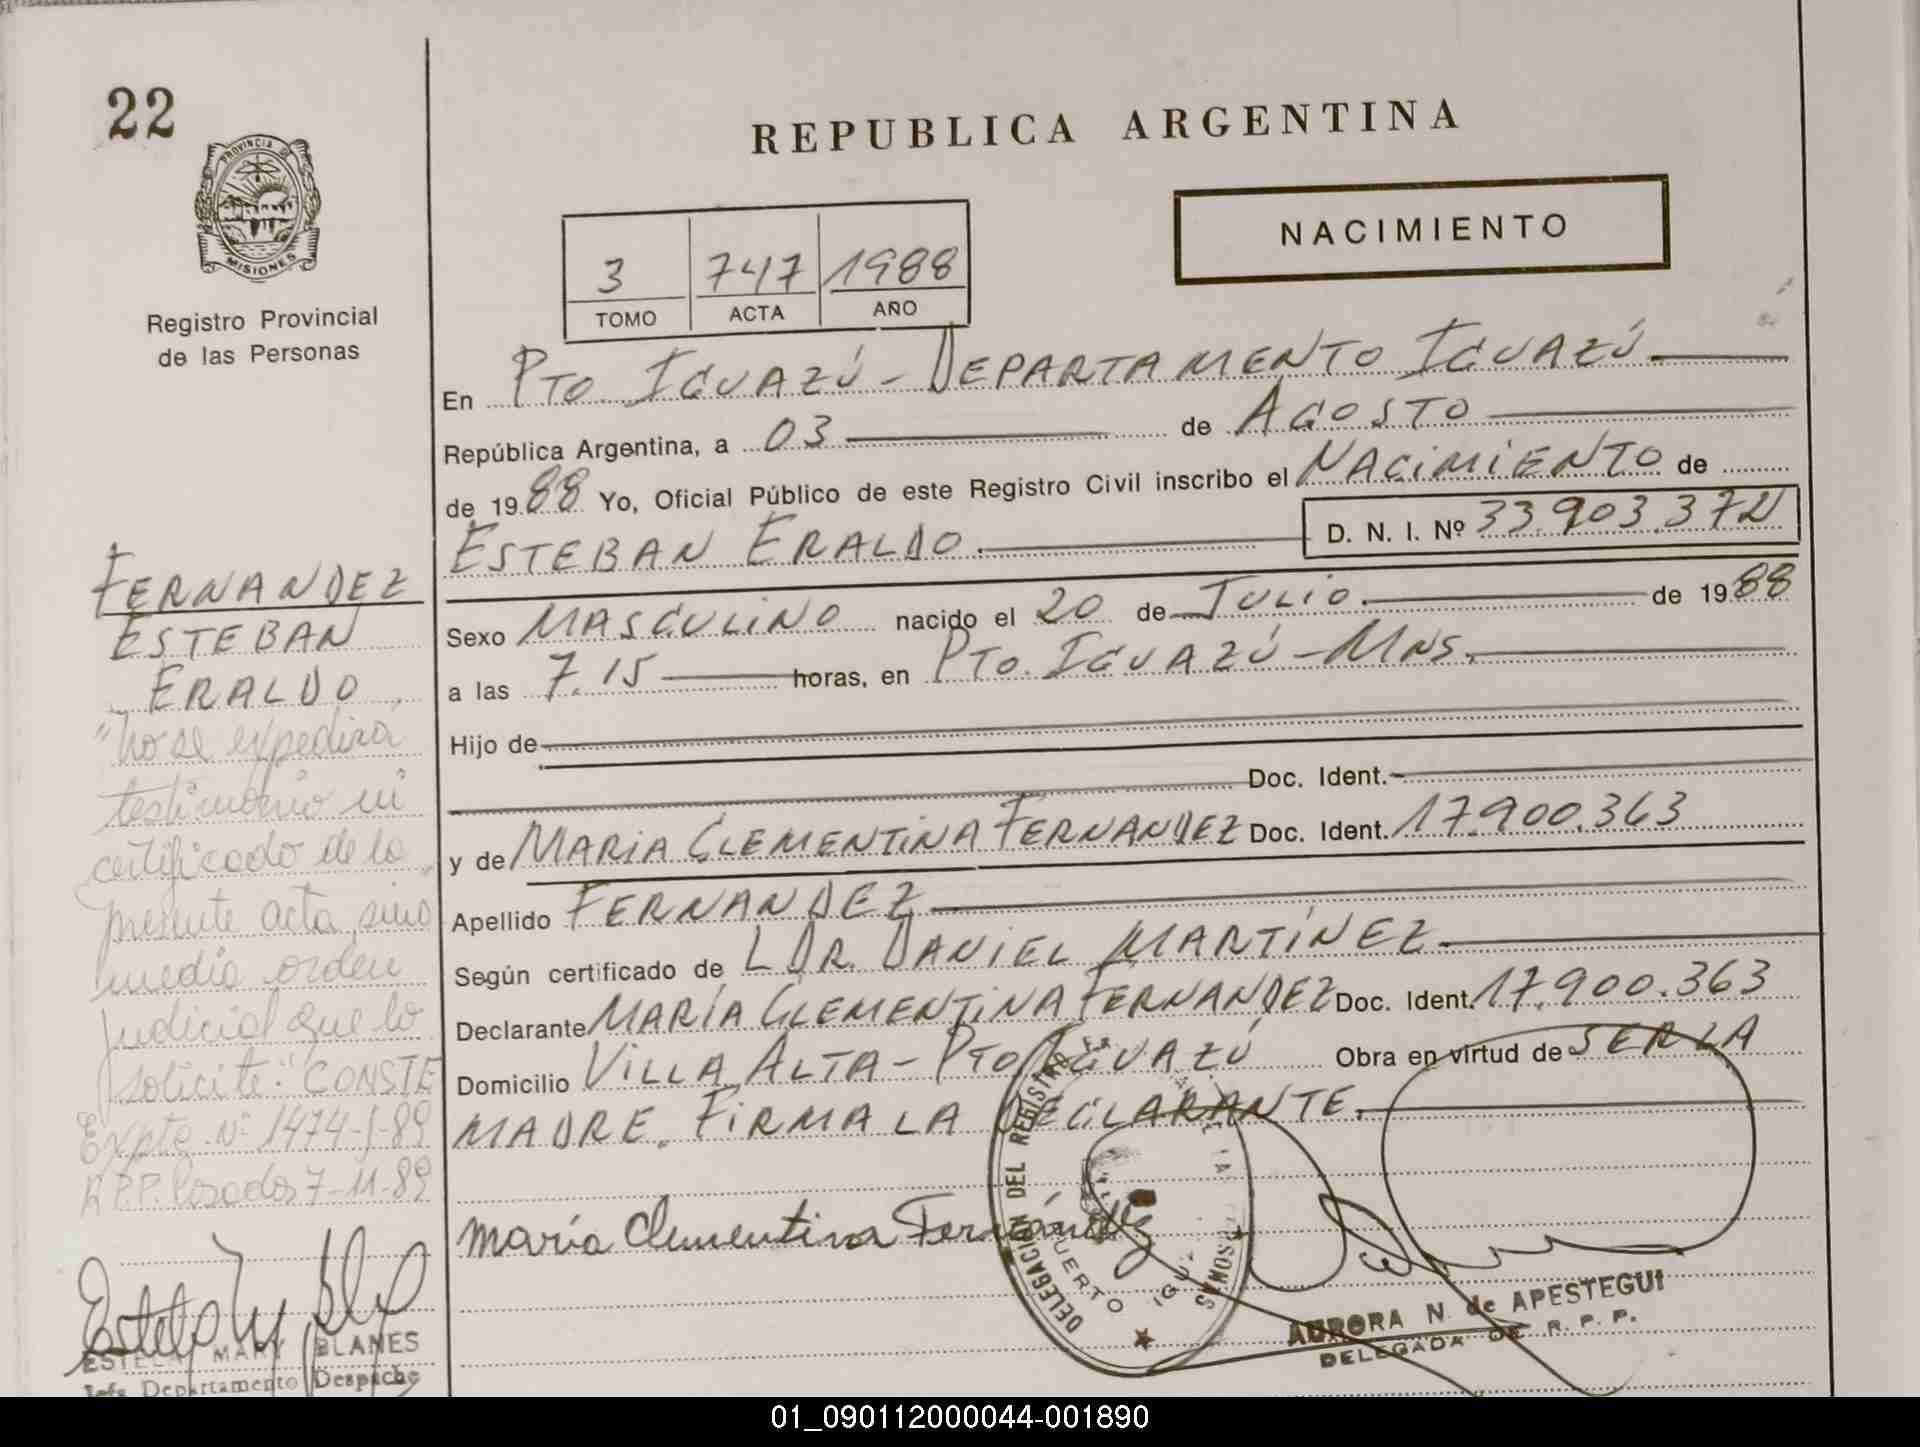 22
PROVINCIA DE
MISIONES
Registro Provincial
de las Personas
FERNANDEZ
ESTEBAN
ERALDO
"No se expedirá
testimonio ni
certificado de la
presente acta, sino
media orden
judicial que lo
solicite." CONSTE
Expte. Nº 1474-J-89
R.P.P. Posadas 7-11-89
ESTELA MARY BLANES
Jefa Departamento Despacho
REPUBLICA ARGENTINA
NACIMIENTO
3 747 1988
TOMO ACTA AÑO
En PTO. IGUAZÚ - DEPARTAMENTO IGUAZÚ
República Argentina, a 03 de AGOSTO
de 1988 Yo, Oficial Público de este Registro Civil inscribo el NACIMIENTO de
ESTEBAN ERALDO. D. N. I. Nº 33.903.372
Sexo MASCULINO nacido el 20 de JULIO de 1988
a las 7.15 horas, en PTO. IGUAZÚ - MNS.
Hijo de
Doc. Ident.
y de MARIA CLEMENTINA FERNANDEZ Doc. Ident. 17.900.363
Apellido FERNANDEZ
Según certificado de L DR. DANIEL MARTÍNEZ.
Declarante MARÍA CLEMENTINA FERNANDEZ Doc. Ident. 17.900.363
Domicilio VILLA ALTA - PTO. IGUAZÚ Obra en virtud de SER LA
MADRE. FIRMA LA DECLARANTE.
María Clementina Fernández
DELEGACION DEL REGISTRO
PUERTO
AURORA N. de APESTEGUI
DELEGADA DE R. P. P.
01_090112000044-001890